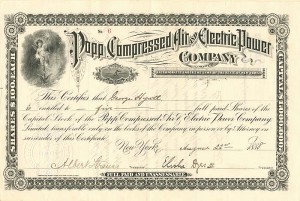 No. 6
Popp Compressed Air and Electric Power
COMPANY
SHARES $100 EACH
This Certifies that George Hyatt
is entitled to five full paid Shares of the
Capital Stock of the Popp Compressed Air & Electric Power Company
Limited, transferable only on the books of the Company in person or by Attorney on
surrender of this Certificate.
New York, August 22nd 18
FULL PAID AND UNASSESSABLE.